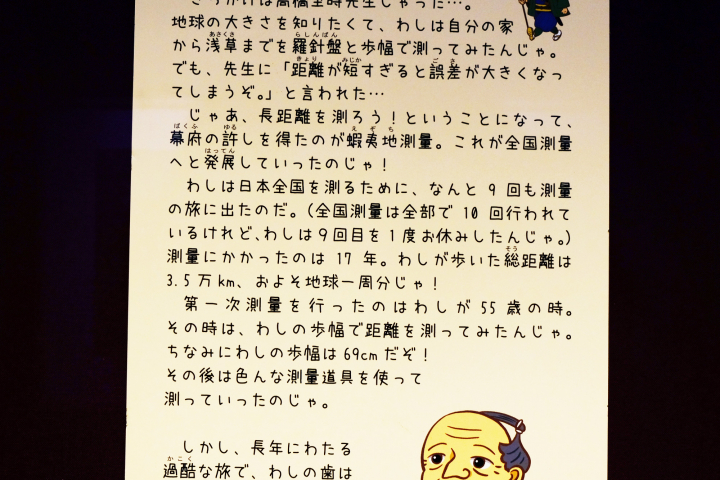 きっかけは高橋至時先生じゃった…。
地球の大きさを知りたくて、わしは自分の家
から浅草までを羅針盤と歩幅で測ってみたんじゃ。
でも、先生に「距離が短すぎると誤差が大きくなっ
てしまうぞ。」と言われた…
じゃあ、長距離を測ろう!ということになって、
幕府の許しを得たのが蝦夷地測量。これが全国測量
へと発展していったのじゃ!
わしは日本全国を測るために、なんと9回も測量
の旅に出たのだ。(全国測量は全部で10回行われて
いるけれど、わしは9回目を1度お休みしたんじゃ。)
測量にかかったのは17年。わしが歩いた総距離は
3.5万km、およそ地球一周分じゃ!
第一次測量を行ったのはわしが55歳の時。
その時は、わしの歩幅で距離を測ってみたんじゃ。
ちなみにわしの歩幅は69cmだぞ!
その後は色んな測量道具を使って
測っていったのじゃ。
しかし、長年にわたる
過酷な旅で、わしの歯は